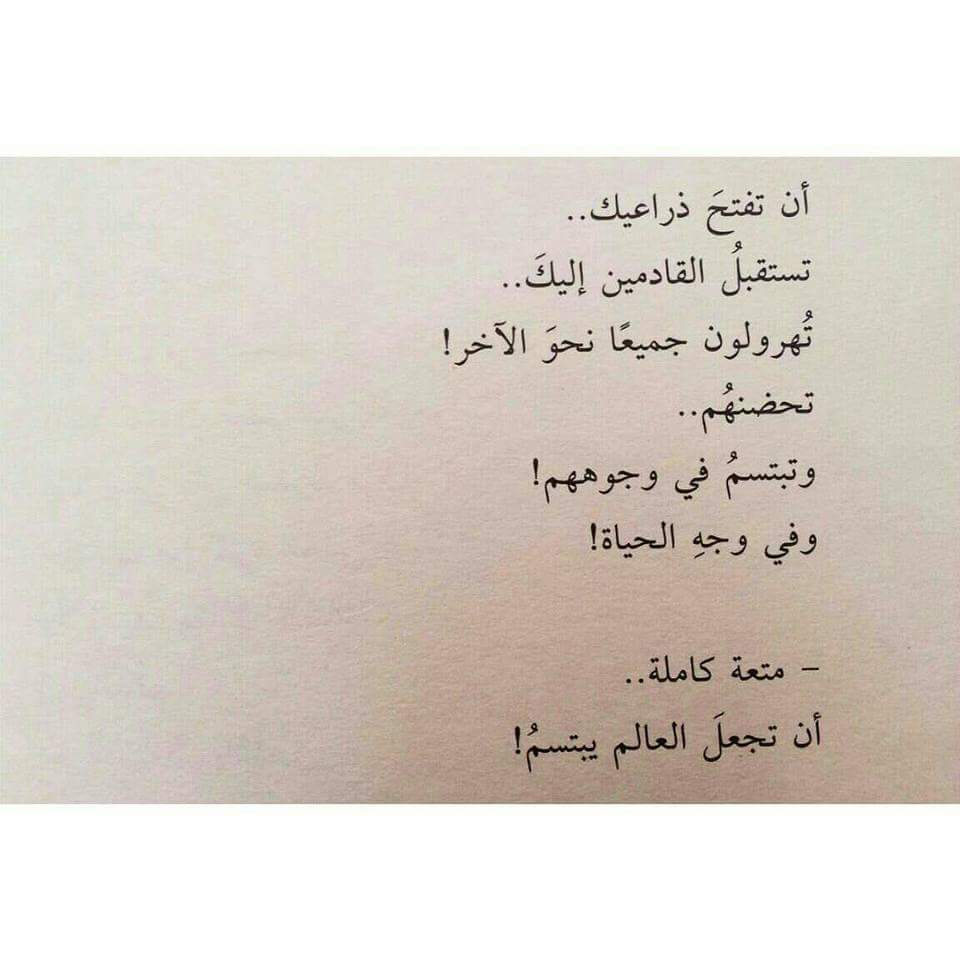 أن تفتحَ ذراعيك..
تستقبلُ القادمين إليكَ..
تُهرولون جميعًا نحوَ الآخر!
تحضنهُم..
وتبتسمُ في وجوههم!
وفي وجهِ الحياة!
– متعة كاملة..
أن تجعلَ العالم يبتسمُ!